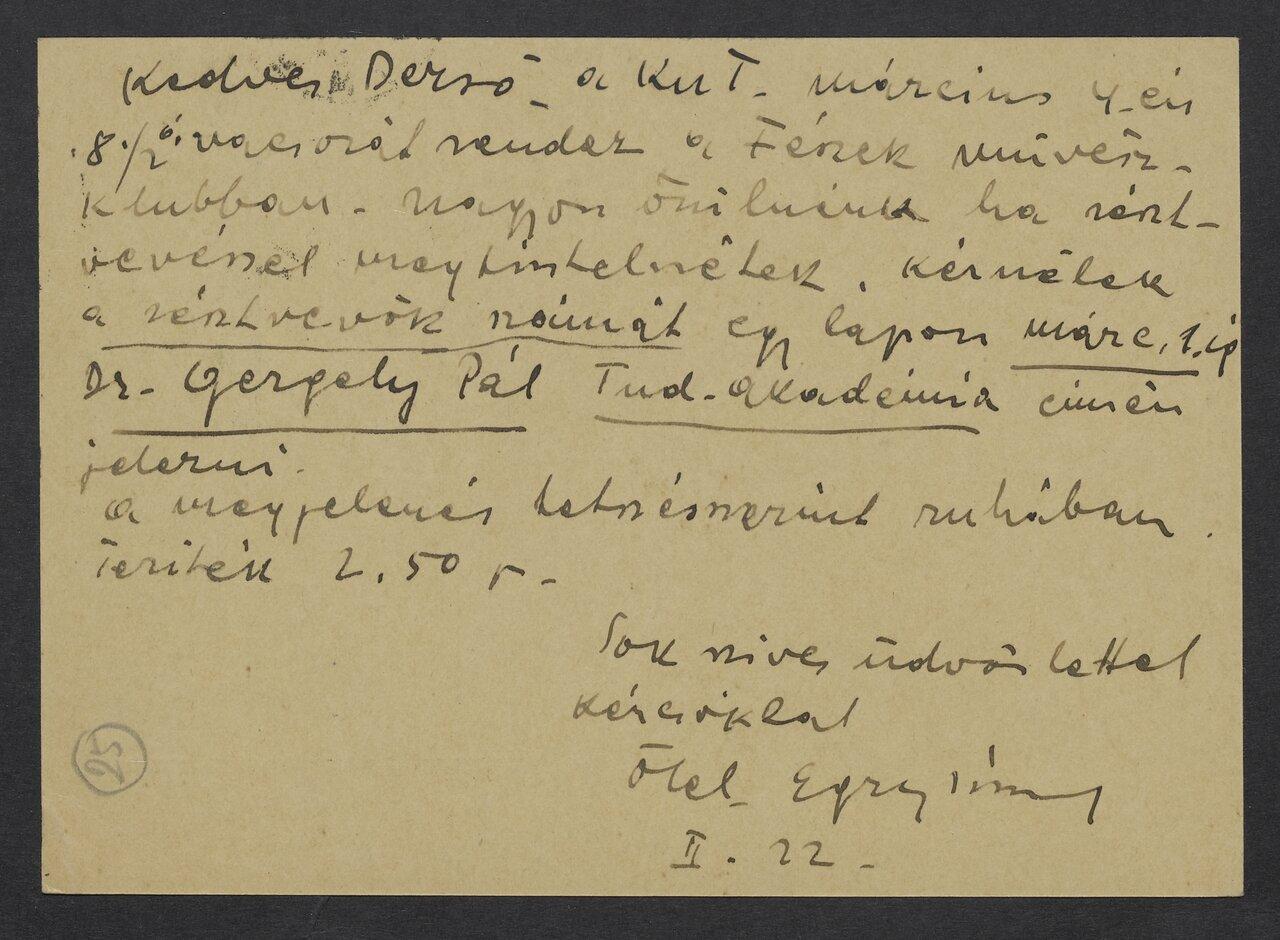 Kedves Derső - a KUT - március 4-én
8 1/2 ó. vacsorát rendez a Fészek művész-
klubban - nagyon örülnénk ha részt-
vevéssel megtisztelnétek. Kérnélek
a résztvevők számát egy lapon márc. 1.ig
Dr. Gergely Pál Tud. Akadémia címén
jelezni.
a megjelenés tetszésszerint ruhában.
Teríték 2.50 p -
Sok szives üdvözlettel
kézcsókkal
ölel Egry
II. 22 -
25